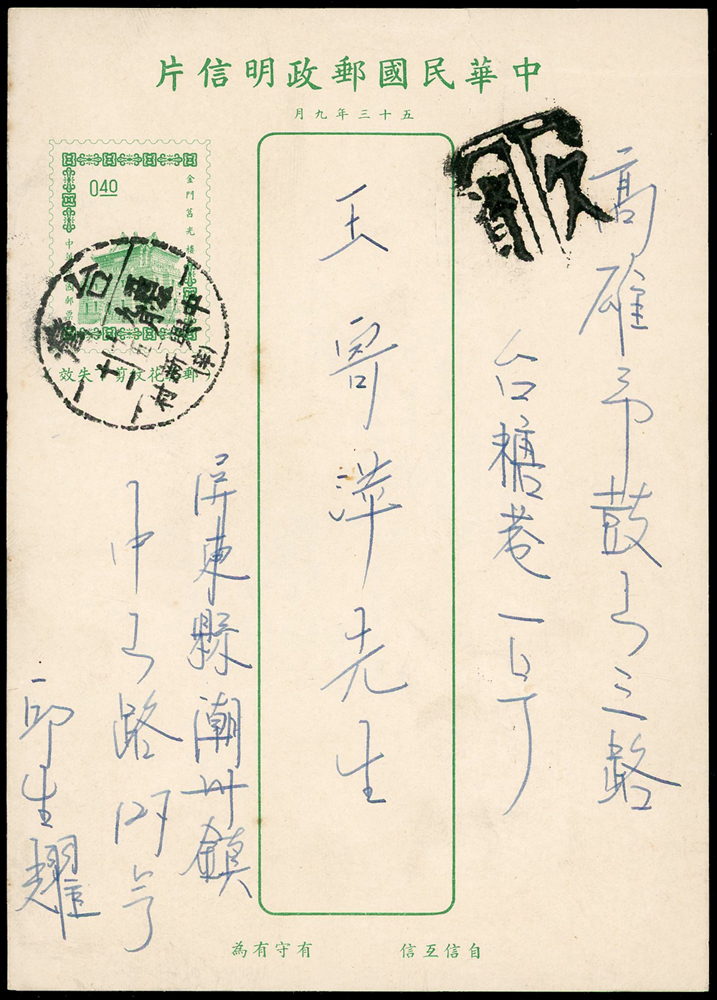 中華民國郵政明信片
五十三年九月
高雄市鼓山三路
台糖巷一号
王寄萍先生
0.40
金門莒光樓
中華民國郵票
郵資花紋剪下失效
台灣
中興新村
屏東縣潮州鎮
中山路127号
邱生耀
自信互信
有守有為
欠資